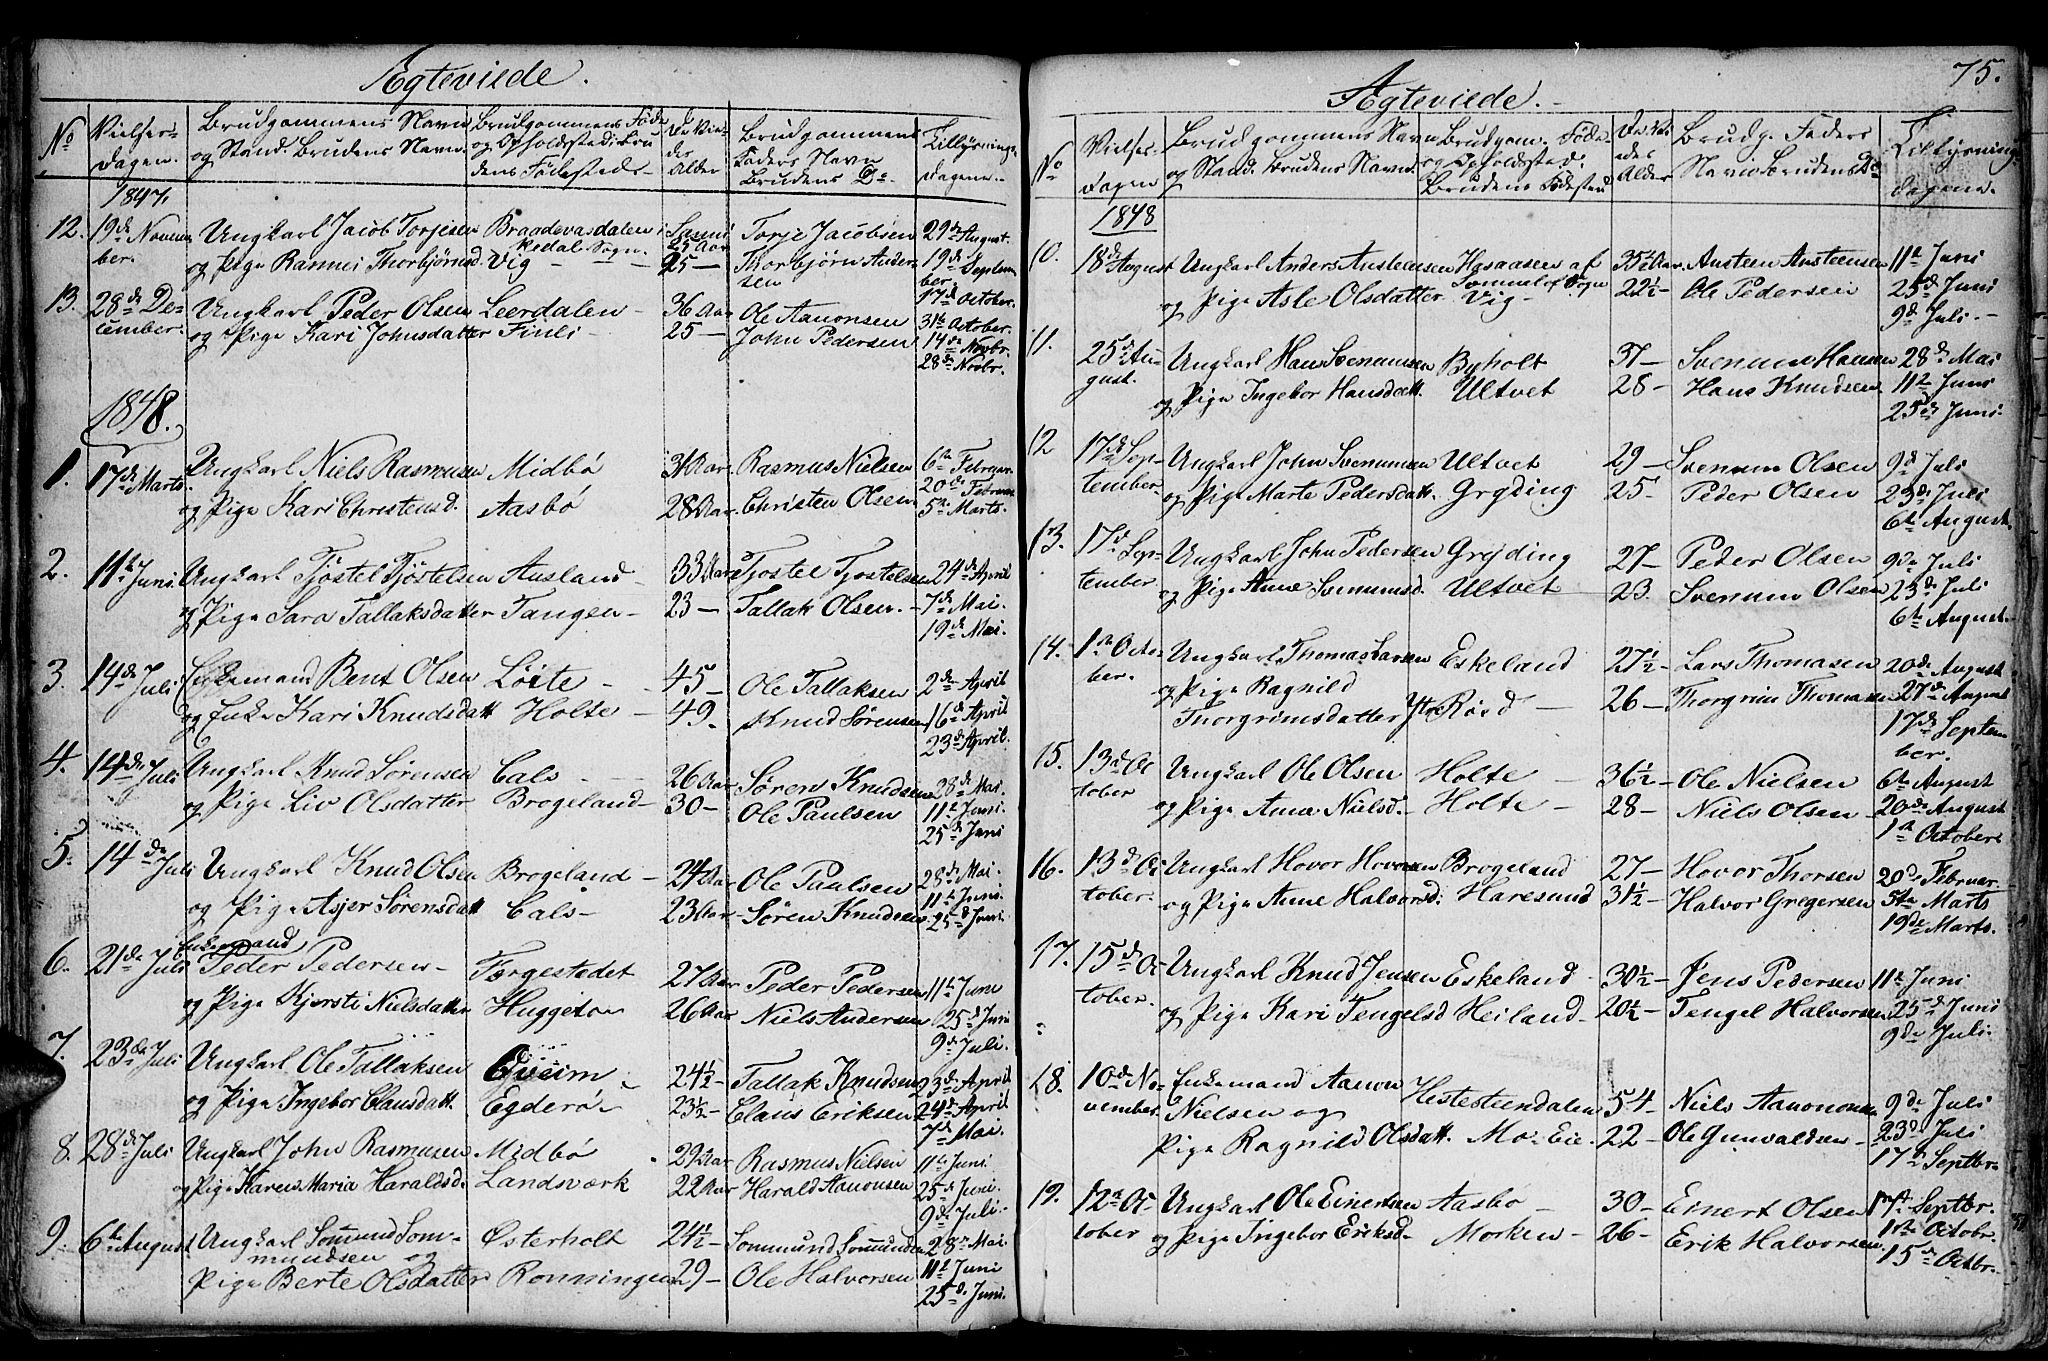 Ægteviede.
No
Vielses-
dagen.
Brudgommens Navn
og Stand. Brudens Navn.
Brudgommens Føde
og Opholdsted i Bru
dens Fødested.
De Vie-
des
Alder
Brudgommens
Faders Navn
Brudens Do.
Tillysnings-
dagene.
1847.
12. 19de Novem Ungkarl Jacob Torjesen Braadevasdalen i Torje Jacobsen 29de August.
ber. og Pige Thorbjørnsd. Vig 25 Thorbjørn Ander- 19de Septem
sen ber.
17de October.
13. 28de De- Ungkarl Peder Olsen Leerdalen 36 Aar Ole Aanonsen 31te October.
cember. og Pige Kari Johnsdatter Finli 25 John Pedersen 14de Novbr.
28de Novbr.
1848.
1. 17de Marts. Ungkarl Niels Rasmusen Midbø 31 Aar Rasmus Nielsen 6te Februar
20de Februar
og Pige Kari Christensd. Aasbø 28 Aar. Christen Olsen 5te Marts.
2. 11te Juni Ungkarl Tjøstel Tjøstelsen Ausland 33 Aar Tjostel Tjostelsen 24de April
og Pige Sara Tallaksdatter Tangen 23 Tallak Olsen. 7de Mai.
19de Mai.
3. 14de Juli Enkemand Bent Olsen Løite 45 Ole Tallaksen 2den April
og Enke Kari Knudsdatt Holte 49. Knud Sørensen 16de April
23de April.
4. 14de Juli Ungkarl Knud Sørensen Cals 26 Aar Søren Knudsen 28de Mai.
og Pige Liv Olsdatter Brogeland 30 Ole Paulsen 11te Juni.
25de Juni
5. 14de Juli Ungkarl Knud Olsen Brogeland 24 Aar Ole Paulsen 28de Mai.
11te Juni.
og Pige Asjer Sørensdatt Cals 23 Aar Søren Knudsen 25de Juni.
6. 21de Juli Enkemand
Peder Pedersen Torgestedet 27 Aar Peder Pedersen 11te Juni
og Pige Kjersti Nielsdatter Huggeto 26 Aar Niels Andersen 25de Juni
9de Juli.
7. 23de Juli Ungkarl Ole Tallaksen Qveim 24½ Tallak Knudsen 23de April
og Pige Ingebor Clausdatt. Egderø 23½ Claus Eriksen 24de April
7de Mai.
8. 28de Juli Ungkarl John Rasmusen Midbø 29 Aar Rasmus Nielsen 11te Juni.
og Pige Karen Maria Haraldsd. Landsværk 22 Aar Harald Aanonsen 25de Juni.
9de Juli.
9. 6te August Ungkarl Sommund Som- Østerholt 24½ Sommund Sommundsen 28de Mai
mundsen og 11te Juni
Pige Berte Olsdatter Ronningen 29 Ole Halvorsen 25de Juni.
75.
Ægteviede.
No
Vielses-
dagen
Brudgommens Navn
og Stand. Brudens Navn.
Brudgom. Føde
og Opholdsted.
Brudens Fødested
De Vi-
edes
Alder
Brudg. Faders
Navn Brudens Do
Tillysning
dagene.
1848
10. 18de August Ungkarl Anders Austeensen af 35½ Aar Austeen Austeensen 11te Juni
og Pige Asle Olsdatter Vig 22½ Ole Pedersen 25de Juni
9de Juli.
11. 25de Au- Ungkarl Hans Svenumsen Byholt 37 Svenum Hansen 28de Mai
gust. og Pige Ingebor Hansdatt. Ultvet 28 Hans Knudsen 11te Juni
25de Juni.
12 17de Sep- Ungkarl John Svenumsen Ultvet 29 Svenum Olsen 9de Juli
tember. og Pige Marte Pedersdatt. Gryding 25 Peder Olsen 23de Juli
6te August.
13. 17de Sep- Ungkarl John Pedersen Gryding 27 Peder Olsen 9de Juli
tember. og Pige Anne Svenumsd. Ultvet 23. Svenum Olsen 23de Juli
6te August.
14. 1ste Octo- Ungkarl Thomas Larsen Eskeland 27½ Lars Thomasen 20de August
ber. og Pige Ragnild
Thorgrimsdatter Ytre Røed 26 Thorgrim Thomasen 27de August
17de Septem
ber.
15. 13de Oc Ungkarl Ole Olsen Holte 36½ Ole Nielsen 6te August
tober og Pige Anne Nielsd. Holte 28 Niels Olsen 20de August
1ste October
16. 13de Oc Ungkarl Hovor Hovorsen Brogeland 27 Hovor Thorsen 20de Februar
tober. og Pige Anne Halvorsd. Haresund 31½ Halvor Gregersen 5te Marts
19de Marts.
17. 15de Oc Ungkarl Knud Jensen Eskeland 30½ Jens Pedersen 11te Juni
tober. og Pige Kari Tengelsd Heiland 20½ Tengel Halvorsen 25de Juni
9de Juli.
18. 10de No- Enkemand Aanon Hestesteendalen 54 Niels Aanonsen 9de Juli
vember. Nielsen og
Pige Ragnild Olsdatt. Mo-Eie 22 Ole Gunvaldsen 23de Juli
17de Septbr.
19. 12te Oc- Ungkarl Ole Einertsen Aasbø 30 Einert Olsen 17de Septbr.
tober og Pige Ingebor Eriksd. Morken 26 Erik Halvorsen. 1ste Octobr.
15de Octbr.